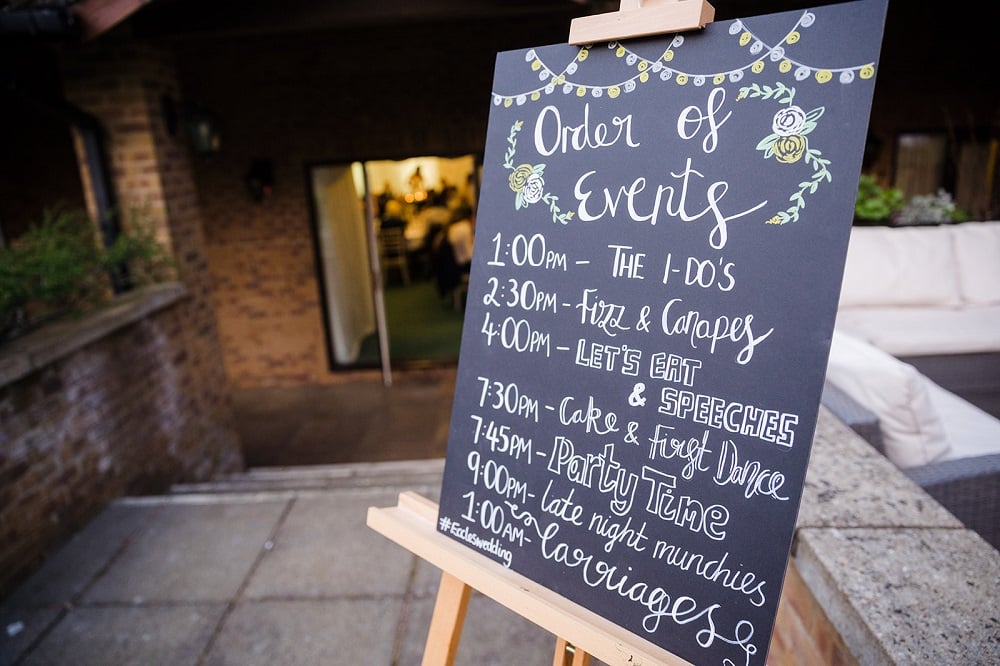 Order of
Events
1:00PM – THE I-DO'S
2:30PM – Fizz & Canapes
4:00PM – LET'S EAT
& SPEECHES
7:30PM – Cake & First Dance
7:45PM – Party Time
9:00PM – late night munchies
1:00AM – Carriages
#Eccleswedding